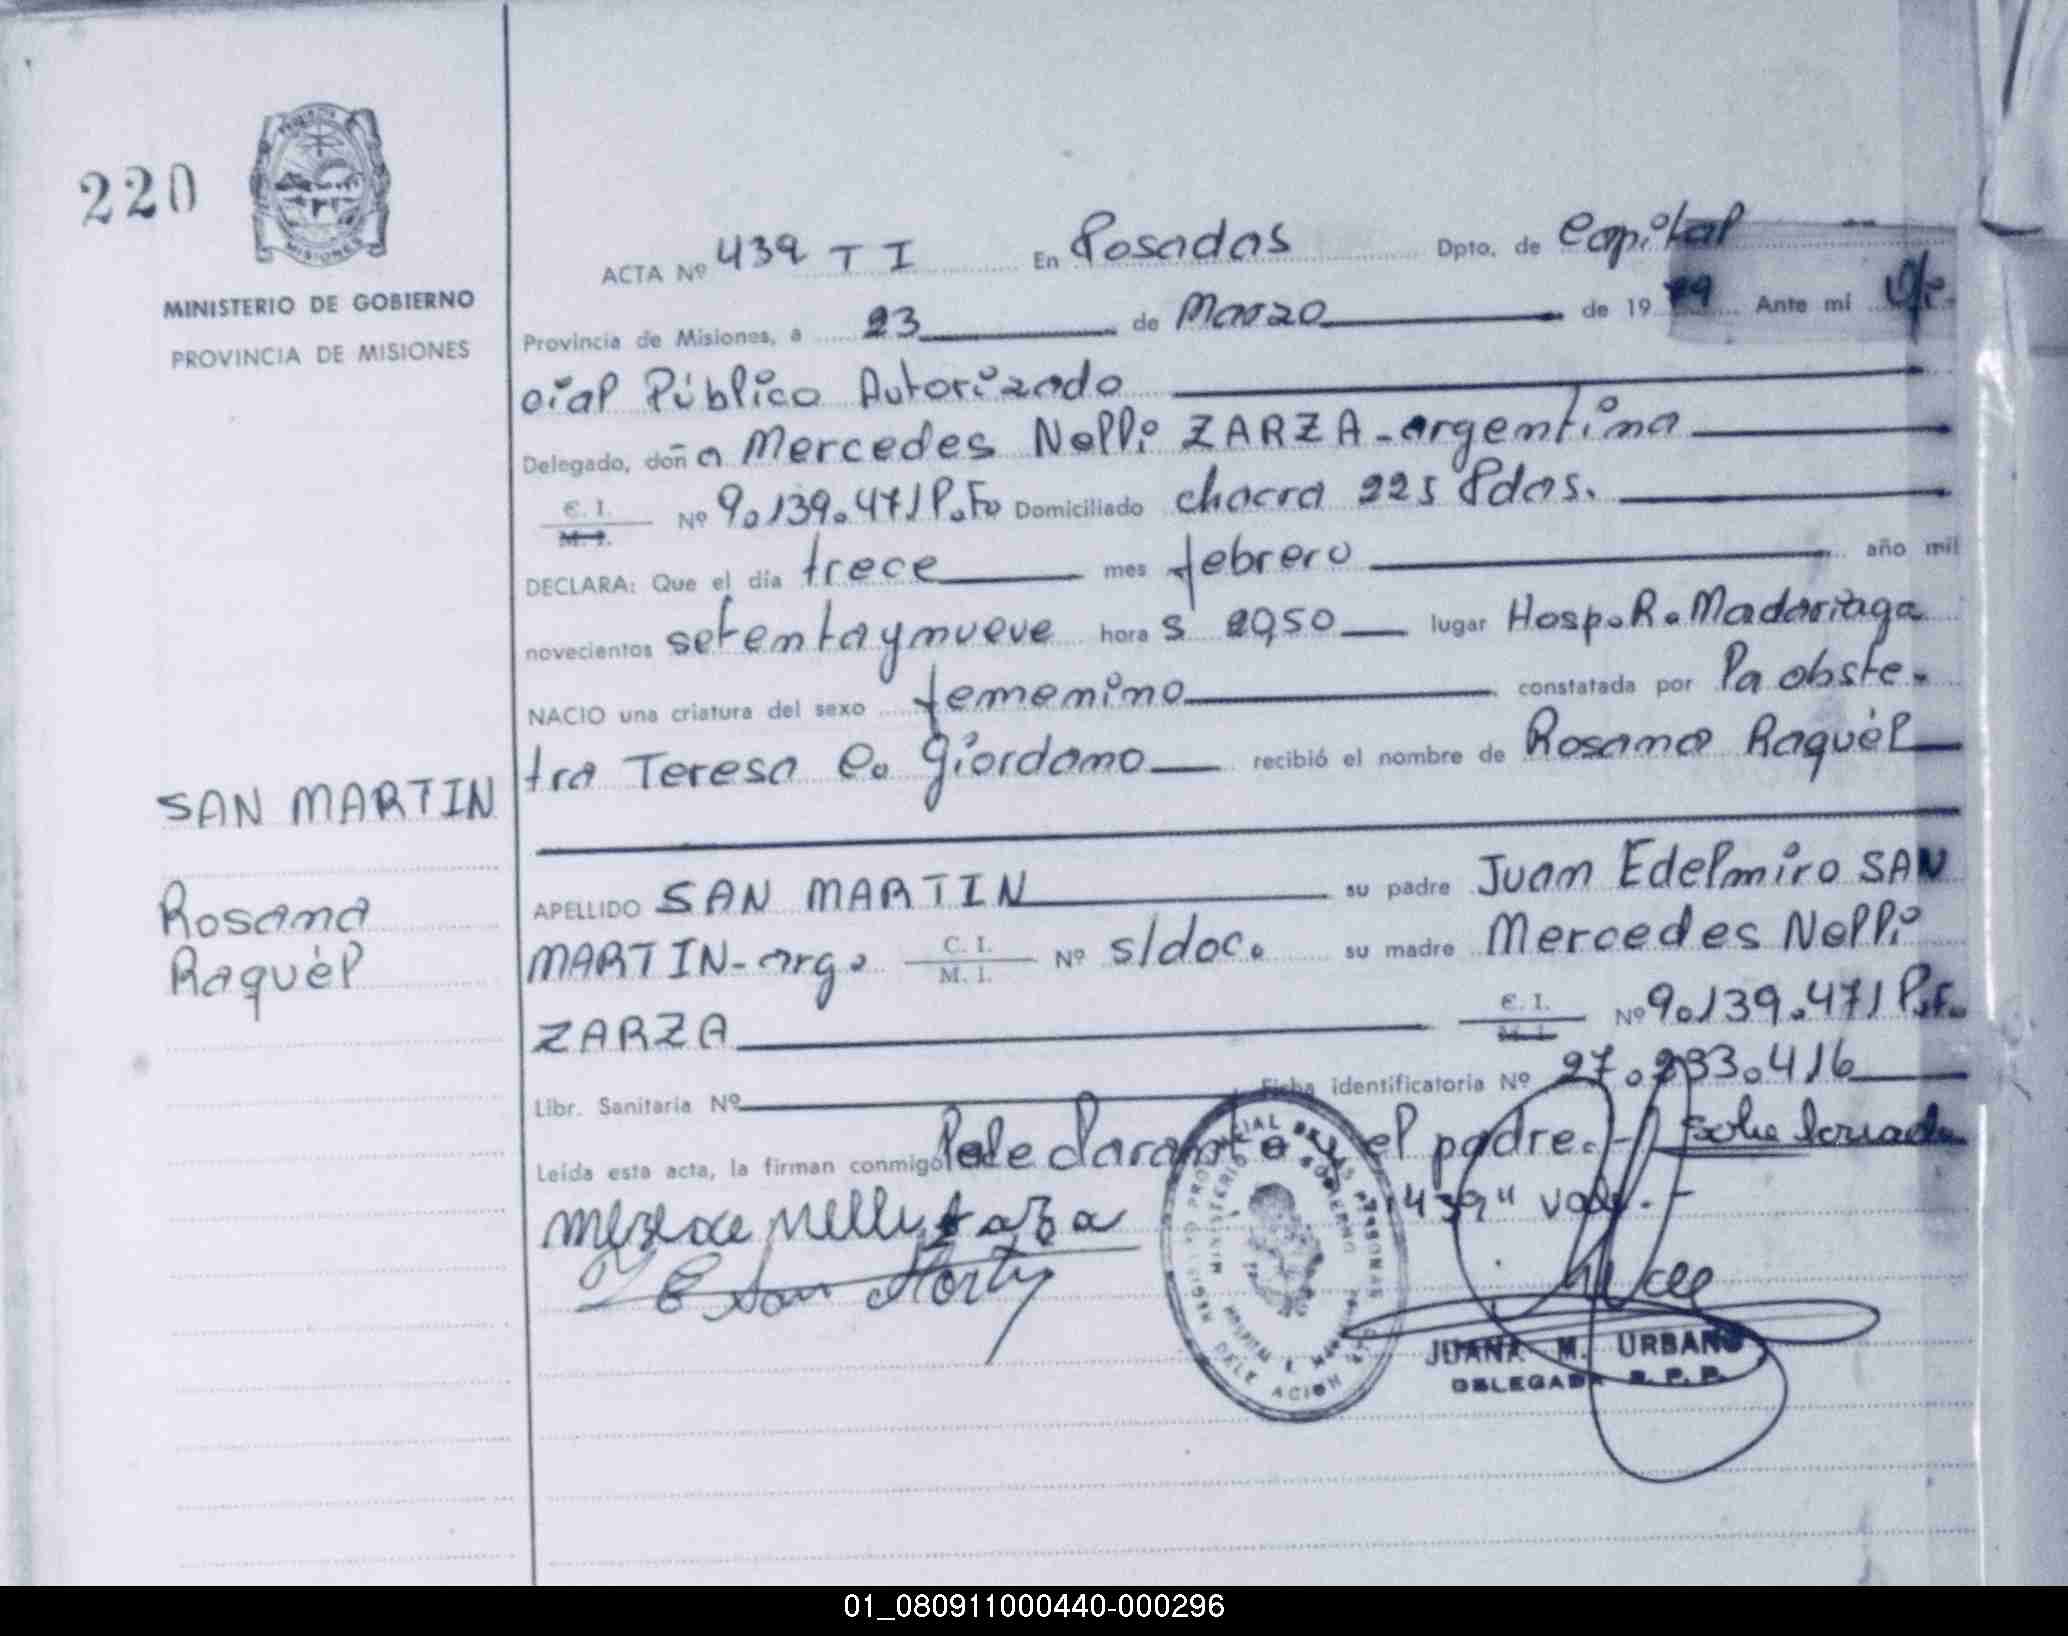 220
MISIONES
MINISTERIO DE GOBIERNO
PROVINCIA DE MISIONES
ACTA Nº 439 T I En Posadas Dpto. de Capital
Provincia de Misiones, a 23 de Marzo de 1979 Ante mi Ofi-
cial Público Autorizado
Delegado, doña Mercedes Nelli ZARZA - argentina
C. I.
M. I. Nº 9.139.471 P.F. Domiciliado chacra 225 Pdas.
DECLARA: Que el día trece mes febrero año mil
novecientos setenta y nueve hora s 20,50 lugar Hosp. R. Madariaga
NACIO una criatura del sexo femenino constatada por la obste-
tra Teresa C. Giordano recibió el nombre de Rosana Raquèl
SAN MARTIN
Rosana
Raquèl
APELLIDO SAN MARTIN su padre Juan Edelmiro SAN
MARTIN - arg. C. I.
M. I. Nº s/doc. su madre Mercedes Nelli
ZARZA C. I.
M. I. Nº 9.139.471 P.F.
Libr. Sanitaria Nº Ficha identificatoria Nº 27.233.416
Leída esta acta, la firman conmigo la declarante el padre.- sobre borrado
"439" vale.-
Nelli Zarza
J E San Martin
JUANA M. URBANO
DELEGADA R. P. P.
01_080911000440-000296